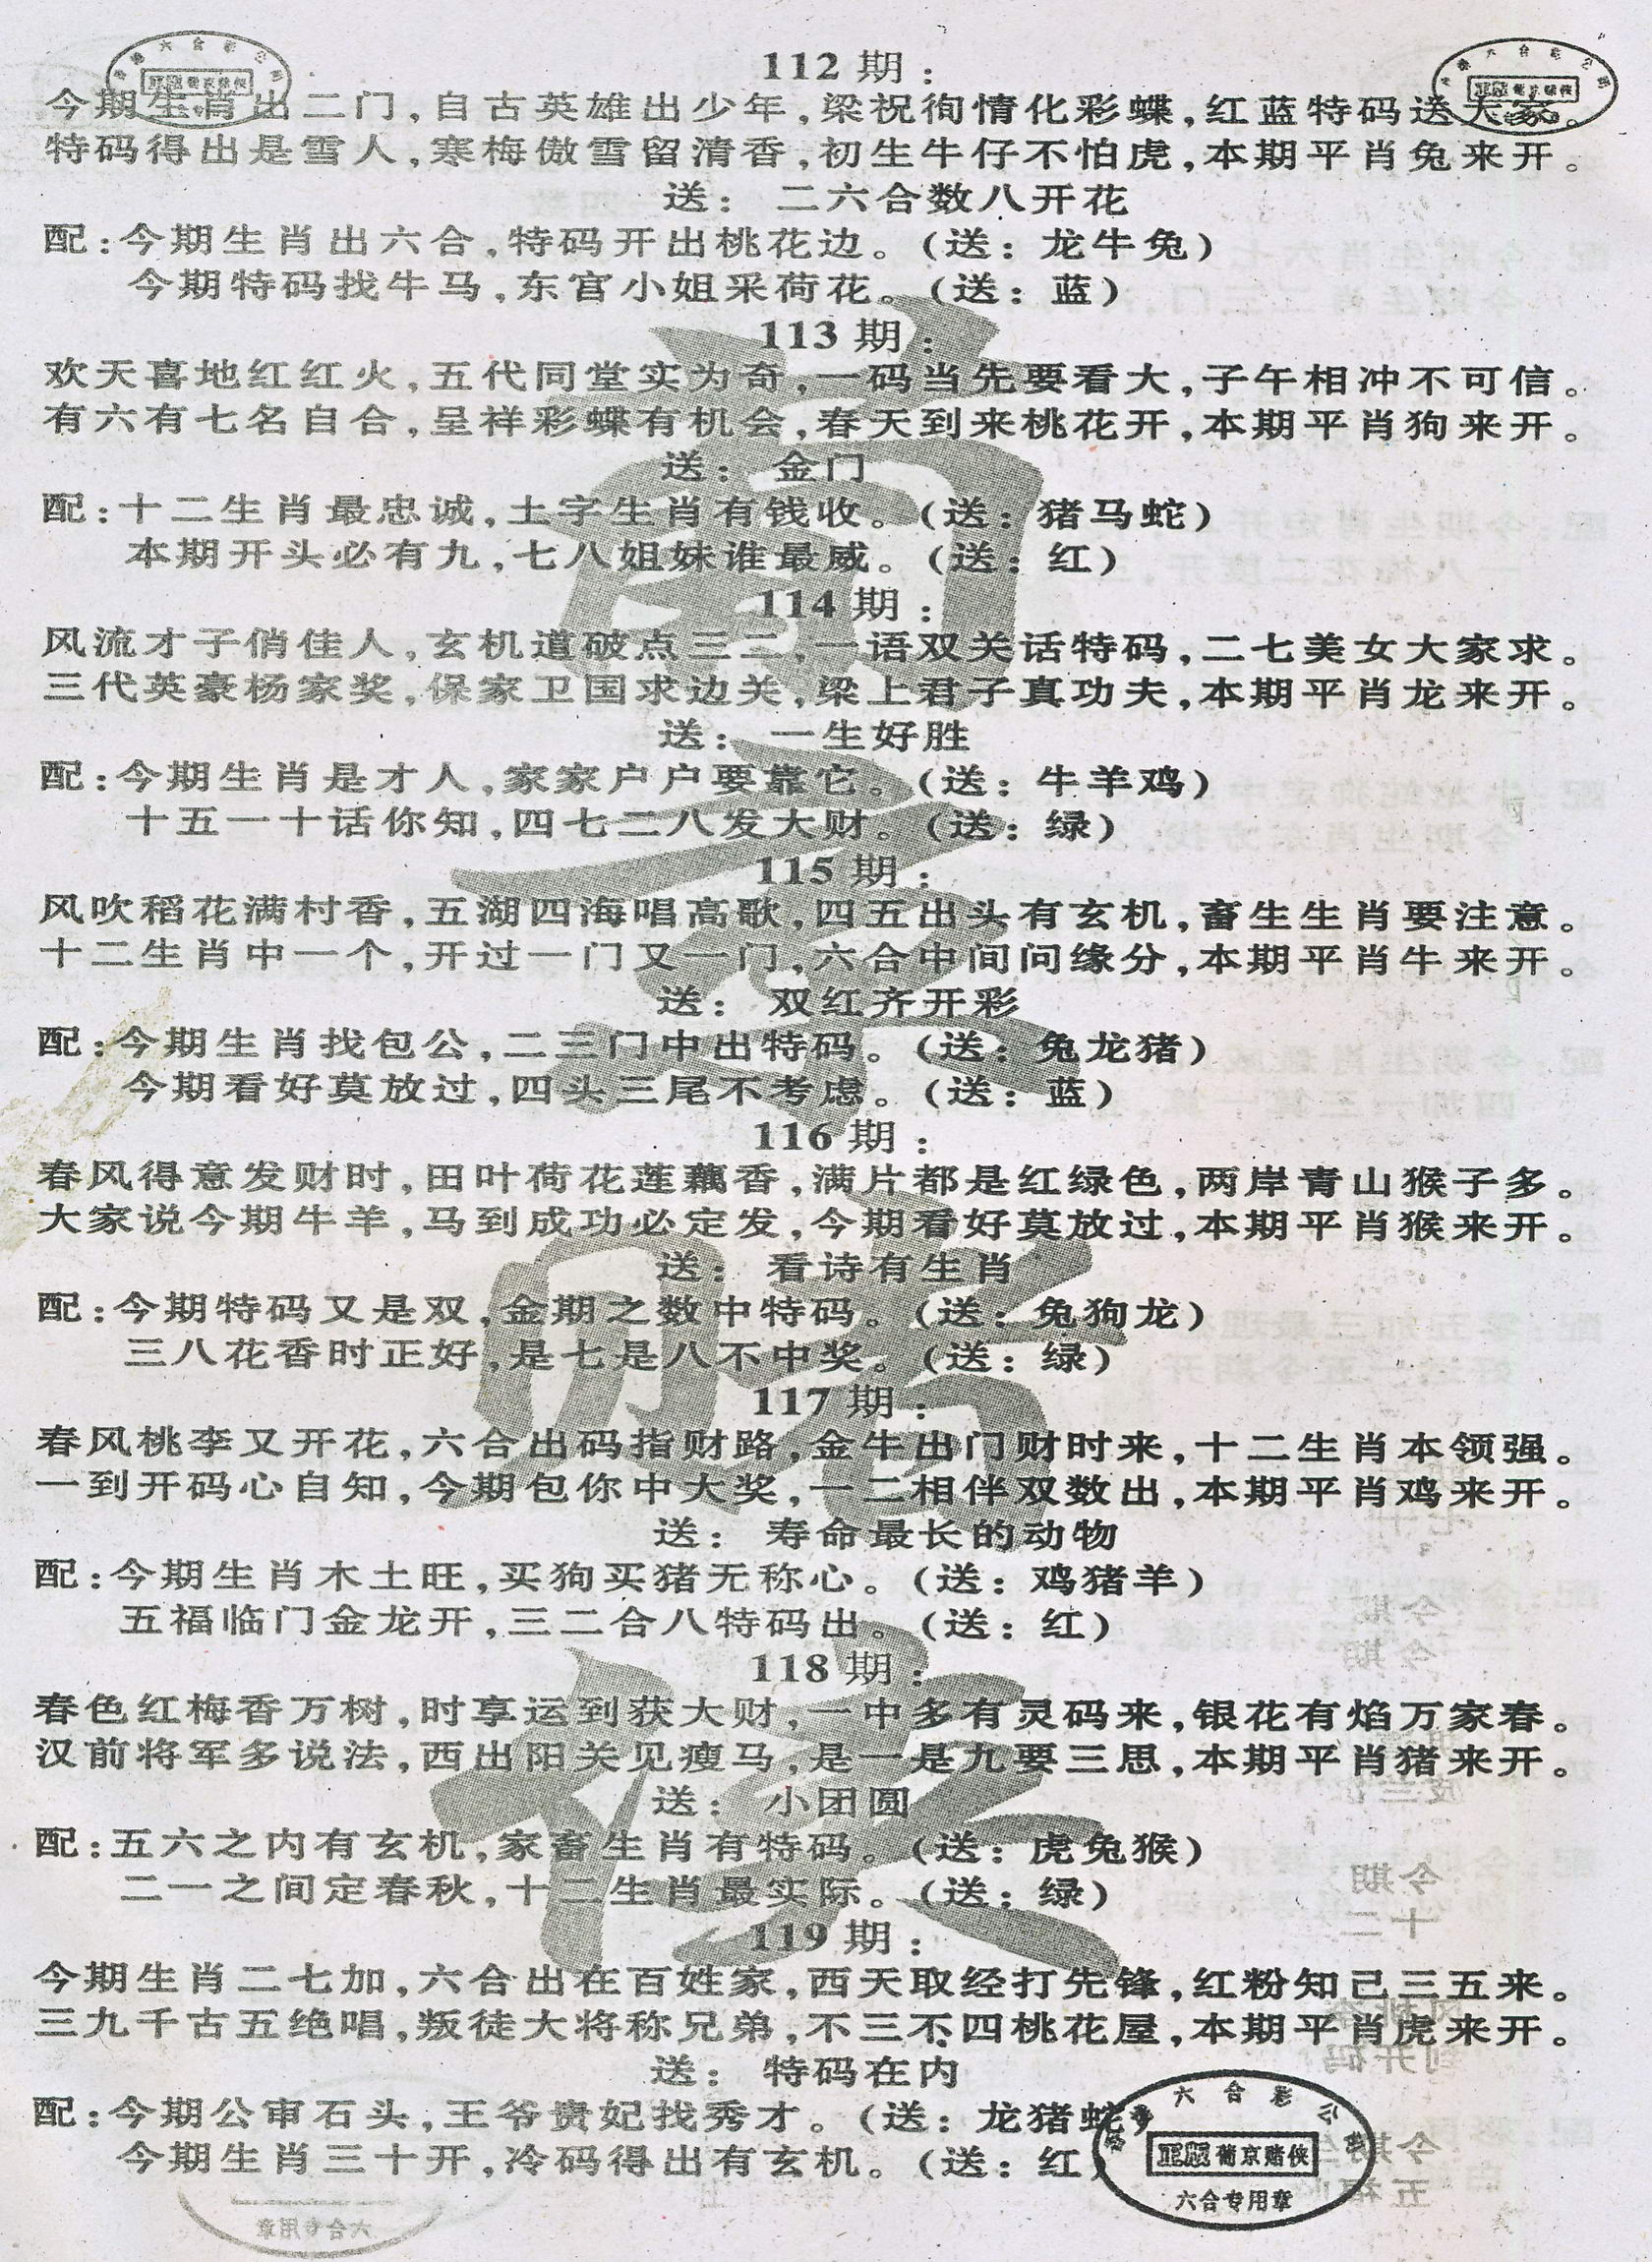 112期：
今期生肖出二门,自古英雄出少年,梁祝徇情化彩蝶,红蓝特码送大家。
特码得出是雪人,寒梅傲雪留清香,初生牛仔不怕虎,本期平肖兔来开。
送：二六合数八开花
配:今期生肖出六合,特码开出桃花边。(送：龙牛兔)
今期特码找牛马,东宫小姐采荷花。(送：蓝)
113期：
欢天喜地红红火,五代同堂实为奇,一码当先要看大,子午相冲不可信。
有六有七名自合,呈祥彩蝶有机会,春天到来桃花开,本期平肖狗来开。
送：金门
配:十二生肖最忠诚,土字生肖有钱收。(送：猪马蛇)
本期开头必有九,七八姐妹谁最威。(送：红)
114期：
风流才子俏佳人,玄机道破点三二,一语双关话特码,二七美女大家求。
三代英豪杨家奖,保家卫国求边关,梁上君子真功夫,本期平肖龙来开。
送：一生好胜
配:今期生肖是才人,家家户户要靠它。(送：牛羊鸡)
十五一十话你知,四七二八发大财。(送：绿)
115期：
风吹稻花满村香,五湖四海唱高歌,四五出头有玄机,畜生生肖要注意。
十二生肖中一个,开过一门又一门,六合中间问缘分,本期平肖牛来开。
送：双红齐开彩
配:今期生肖找包公,二三门中出特码。(送：兔龙猪)
今期看好莫放过,四头三尾不考虑。(送：蓝)
116期：
春风得意发财时,田叶荷花莲藕香,满片都是红绿色,两岸青山猴子多。
大家说今期牛羊,马到成功必定发,今期看好莫放过,本期平肖猴来开。
送：看诗有生肖
配:今期特码又是双,金期之数中特码。(送：兔狗龙)
三八花香时正好,是七是八不中奖。(送：绿)
117期：
春风桃李又开花,六合出码指财路,金牛出门财时来,十二生肖本领强。
一到开码心自知,今期包你中大奖,一二相伴双数出,本期平肖鸡来开。
送：寿命最长的动物
配:今期生肖木土旺,买狗买猪无称心。(送：鸡猪羊)
五福临门金龙开,三二合八特码出。(送：红)
118期：
春色红梅香万树,时享运到获大财,一中多有灵码来,银花有焰万家春。
汉前将军多说法,西出阳关见瘦马,是一是九要三思,本期平肖猪来开。
送：小团圆
配:五六之内有玄机,家畜生肖有特码。(送：虎兔猴)
二一之间定春秋,十二生肖最实际。(送：绿)
119期：
今期生肖二七加,六合出在百姓家,西天取经打先锋,红粉知己三五来。
三九千古五绝唱,叛徒大将称兄弟,不三不四桃花屋,本期平肖虎来开。
送：特码在内
配:今期公审石头,王爷贵妃找秀才。(送：龙猪蛇)
今期生肖三十开,冷码得出有玄机。(送：红)
六合彩公
正版葡京赌侠
六合专用章